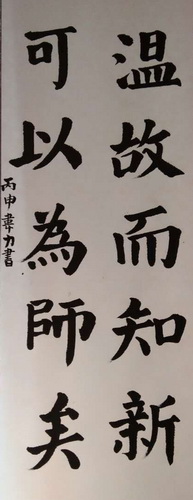 温故而知新
可以為師矣
丙申韋力書